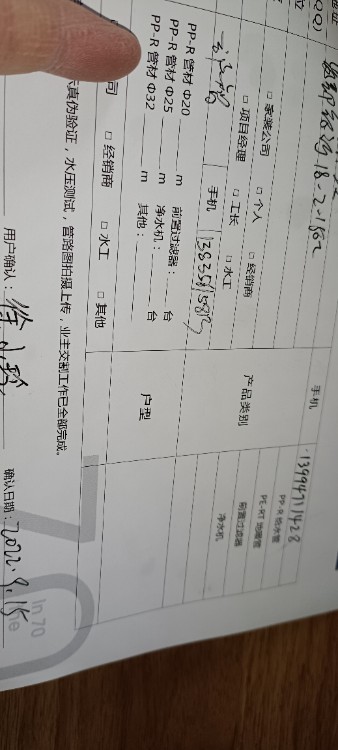 18-2-1802
手机 13994711428
□ 家装公司 □ 个人 □ 经销商
□ 项目经理 □ 工长 □ 水工
产品类别
PP-R 给水管
PE-RT 地暖管
前置过滤器
净水机
手机
PP-R 管材 Φ20 m 前置过滤器： 台
PP-R 管材 Φ25 m 净水机： 台
PP-R 管材 Φ32 m 其他：
户型
司 □ 经销商 □ 水工 □ 其他
真伪验证，水压测试，管路图拍摄上传，业主交割工作已全部完成。
用户确认： 确认日期：2022.9.15
In 70